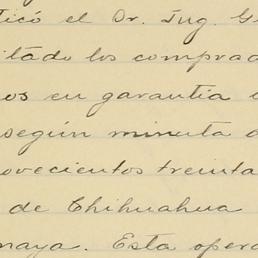 ticó el Dr. Ing. G
itado los comprad
os en garantia
según minuta d
ovecientos treinta
de Chihuahua
naya. Esta opera